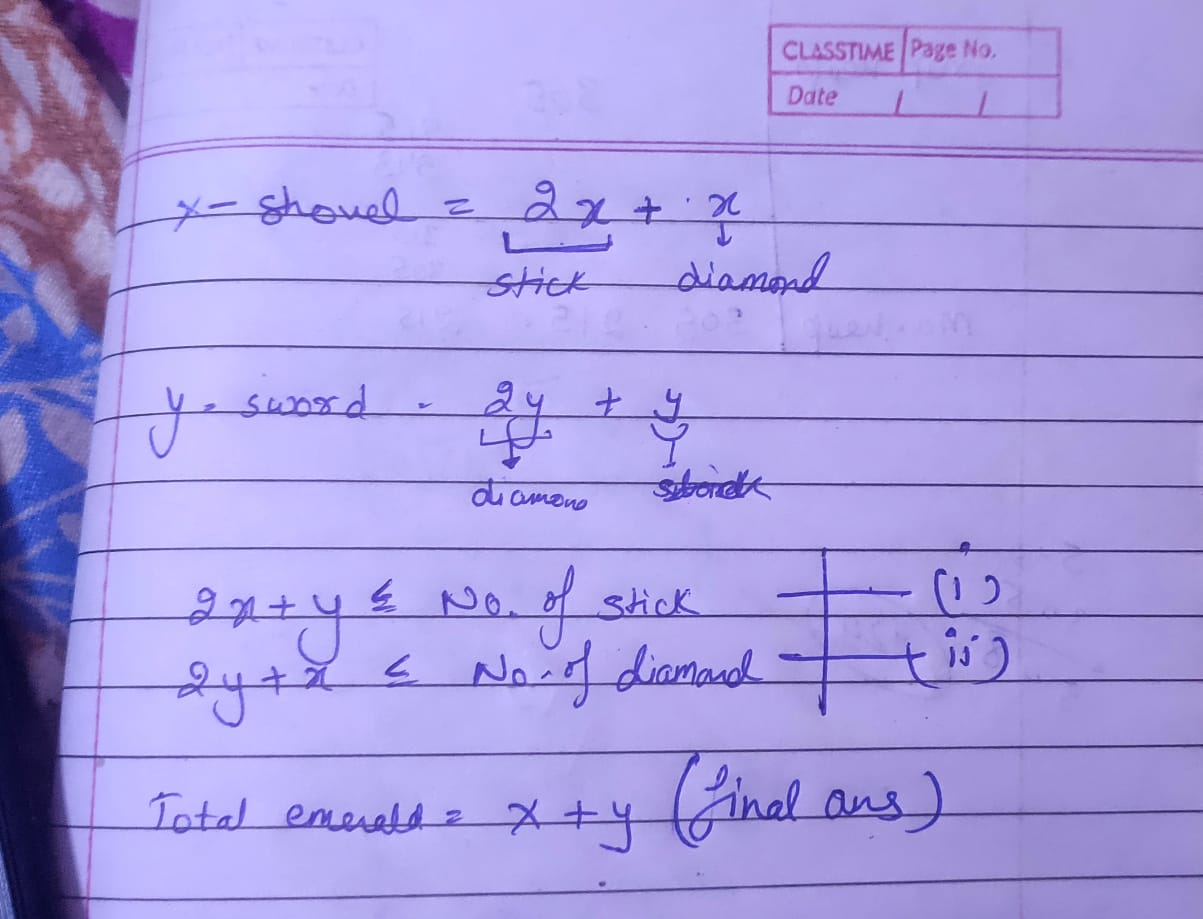 CLASSTIME Page No.
Date / /
x - shovel = 2x + x
stick diamond
y - sword - 2y + y
diamond
2x + y ≤ No. of stick (i)
2y + x ≤ No. of diamond (ii)
Total emerald = x + y (final ans)